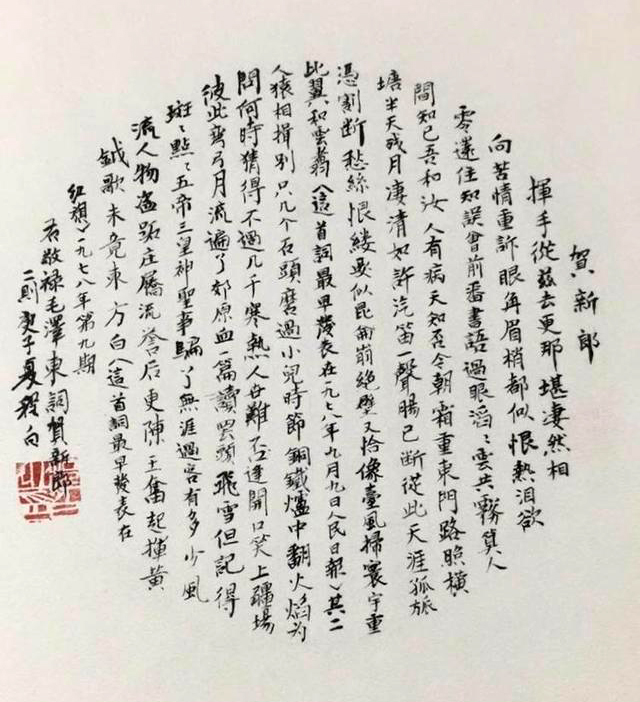 賀新郎
揮手從茲去更那堪凄然相
向苦情重訴眼角眉梢都似恨熱泪欲
零還住知誤會前番書語過眼滔〻雲共霧算人
間知己吾和汝人有病天知否今朝霜重東門路照橫
塘半天残月凄清如許汽笛一聲腸已断從此天涯孤旅
憑割断愁絲恨縷要似昆侖崩絕壁又恰像臺風掃寰宇重
比翼和雲翥（這首詞最早發表在一九七八年九月九日人民日報）其二
人猿相揖别只几个石頭磨過小兒時節銅鐵爐中翻火焰为
問何時猜得不過几千寒熱人世難逢開口笑上疆場
彼此彎弓月流遍了郊原血一篇讀罢頭飛雪但記得
斑〻點〻五帝三皇神聖事騙了無涯過客有多少風
流人物盗跖庄屩流誉后更陳王奮起揮黄
鉞歌未竟東方白（這首詞最早發表在
红旗）一九七八年第九期
右敬禄毛澤東詞賀新郎
二則庚子夏